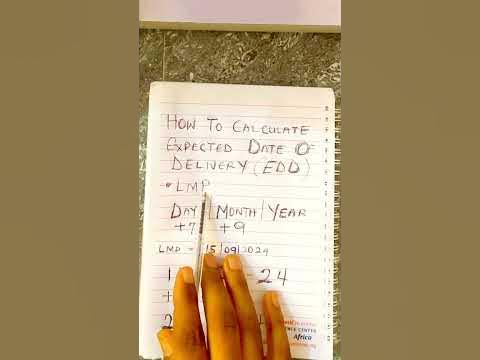 HOW TO CALCULATE
EXPECTED DATE OF
DELIVERY (EDD)
* LMP
DAY | MONTH | YEAR
+7 +9
LMP = 15/09/2024
1 - 24
+
2
Africa